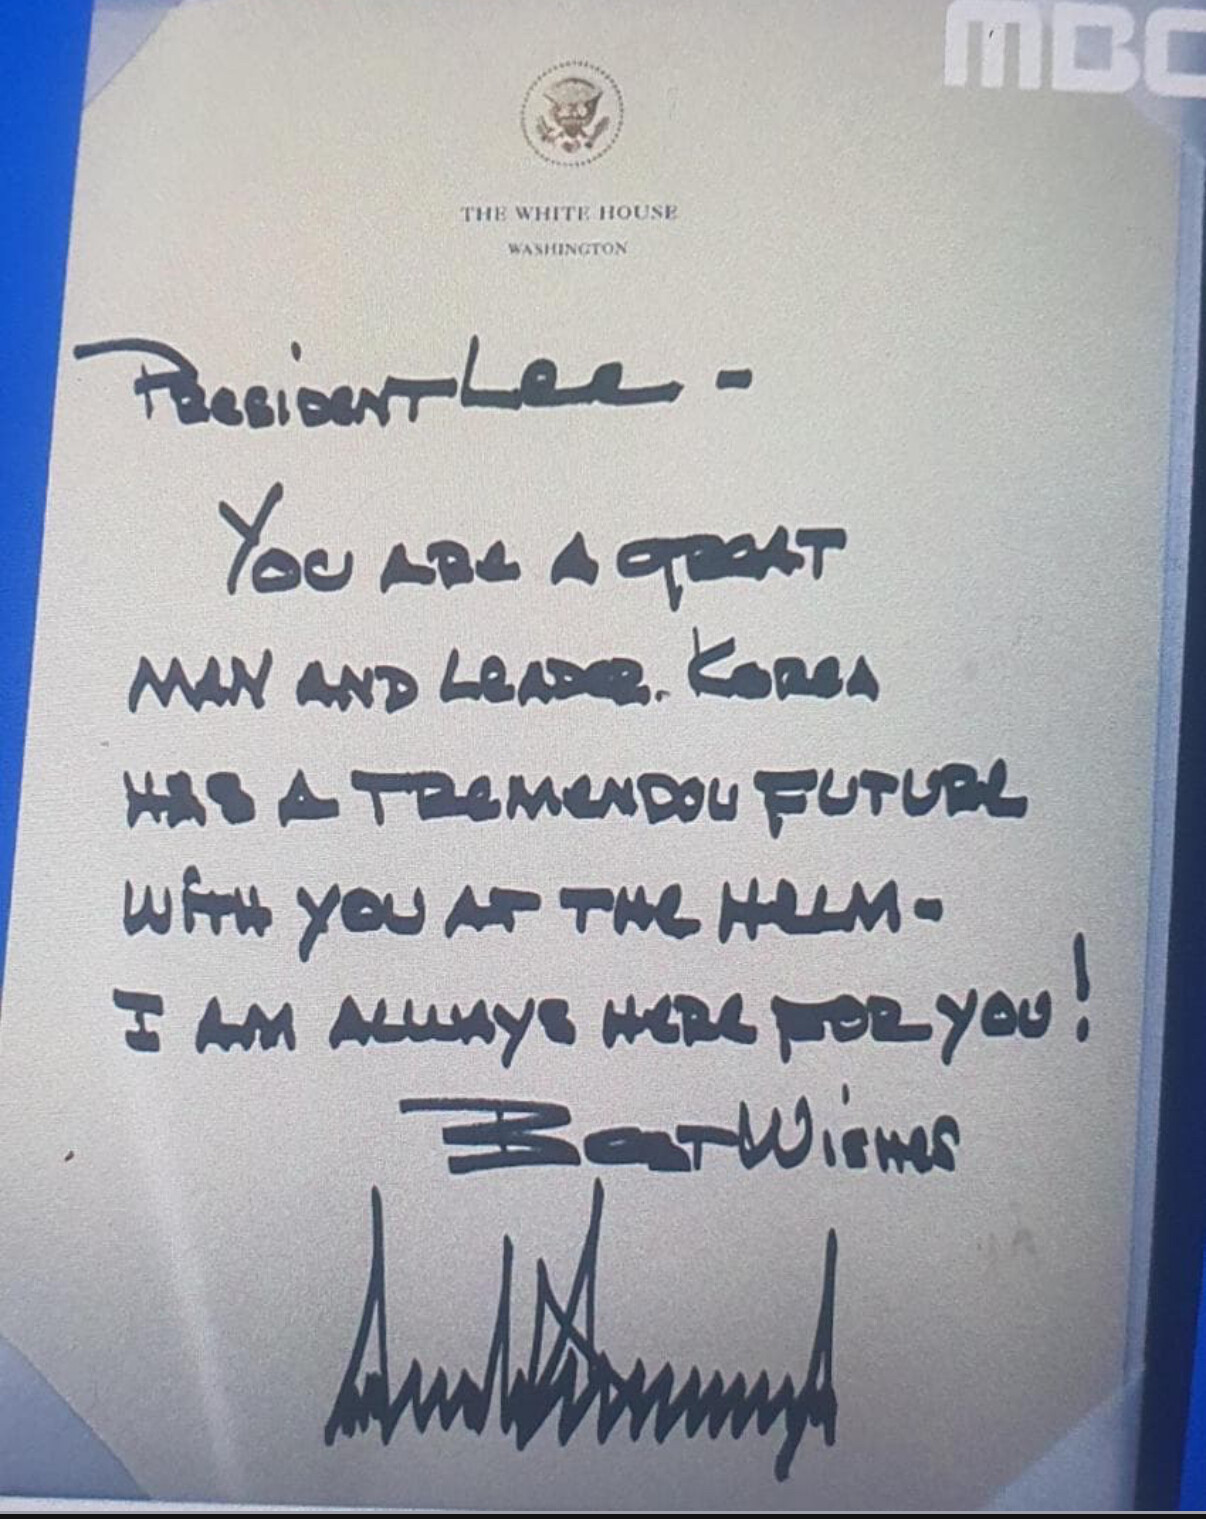 MBC
THE WHITE HOUSE
WASHINGTON
PRESIDENT LEE -
YOU ARE A GREAT
MAN AND LEADER. KOREA
HAS A TREMENDOU FUTURE
WITH YOU AT THE HELM-
I AM ALWAYS HERE FOR YOU!
BEST WISHES